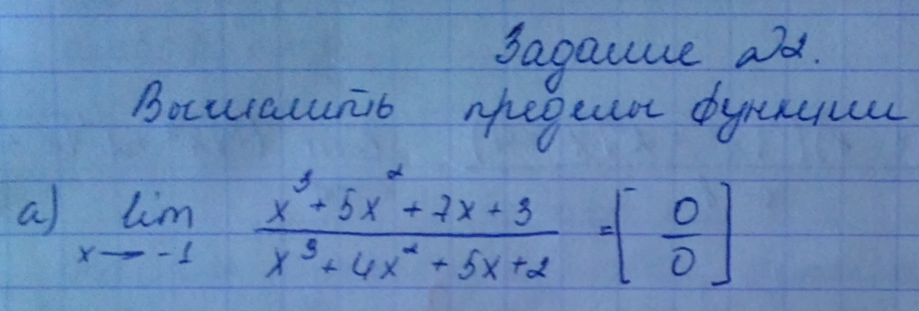 Задание №2.
Вычислить пределы функции
а) lim x→-1 (x³+5x²+7x+3)/(x³+4x²+5x+2) = [0/0]